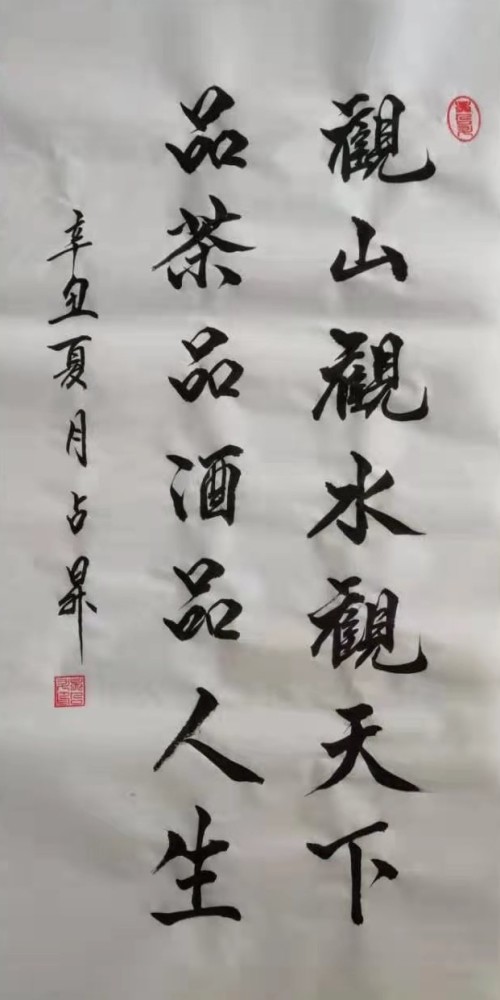 觀山觀水觀天下
品茶品酒品人生
辛丑夏月占昇